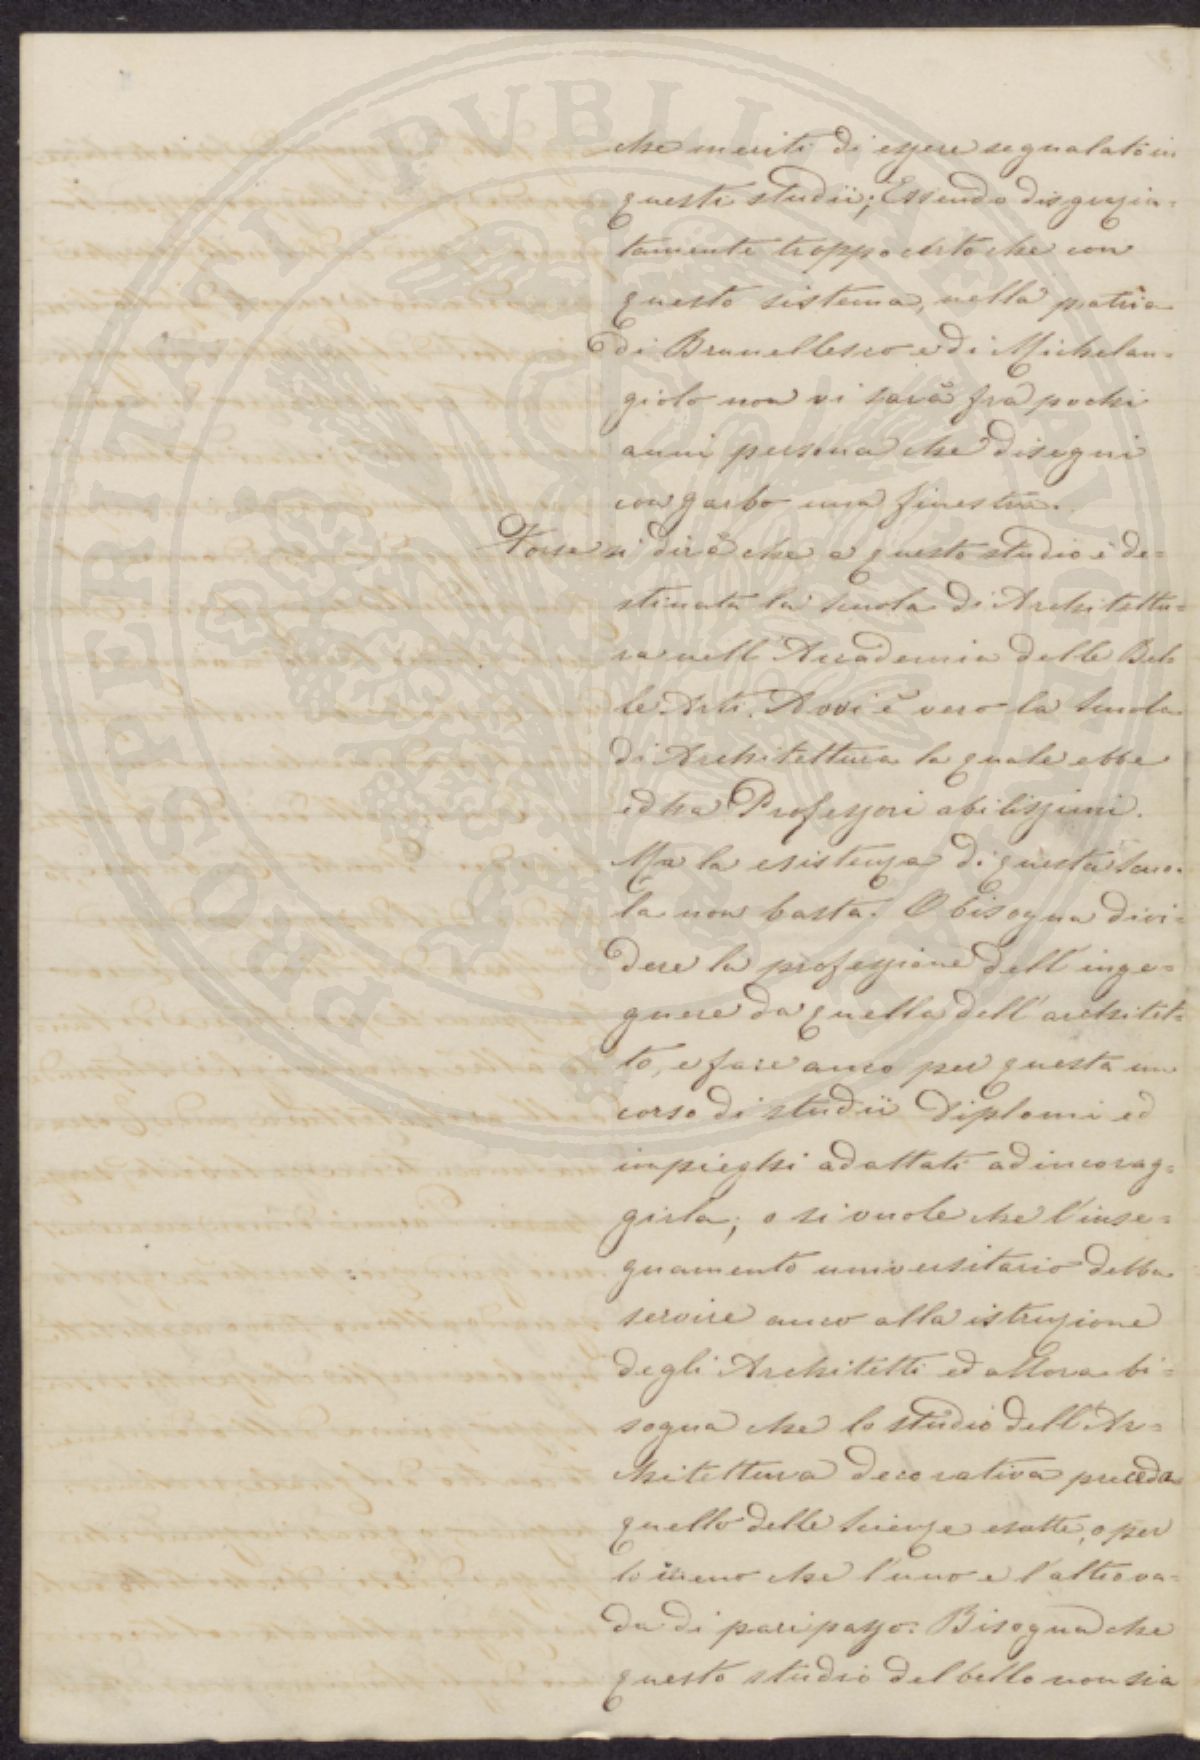 che meriti di essere segnalato in
questi studii; Essendo disgrazia=
tamente troppo certo che con
questo sistema, nella patria
di Brunellesco e di Michelan=
giolo non vi sarà fra pochi
anni persona che disegni
con garbo una finestra.
Forse si dirà che a questo studio è de=
stinata la Scuola di Architettu=
ra nell' Accademia delle Bel=
le Arti. Avvi è vero la Scuola
di Architettura la quale ebbe
ed ha Professori abilissimi.
Ma la esistenza di questa Scuo=
la non basta. O bisogna divi=
dere la professione dell' inge=
gnere da quella dell' architet=
to, e fare anco per questa un
corso di studii Diplomi ed
impieghi adattati ad incorag=
girla; o si vuole che l'inse=
gnamento universitario debba
servire anco alla istruzione
degli Architetti ed allora bi=
sogna che lo studio dell' Ar=
chitettura decorativa preceda
quello delle Scienze esatte, o per
lo meno che l'uno e l'altro va=
da di pari passo. Bisogna che
questo studio del bello non sia
PROSPERITATI PUBLICAE AUGENDAE